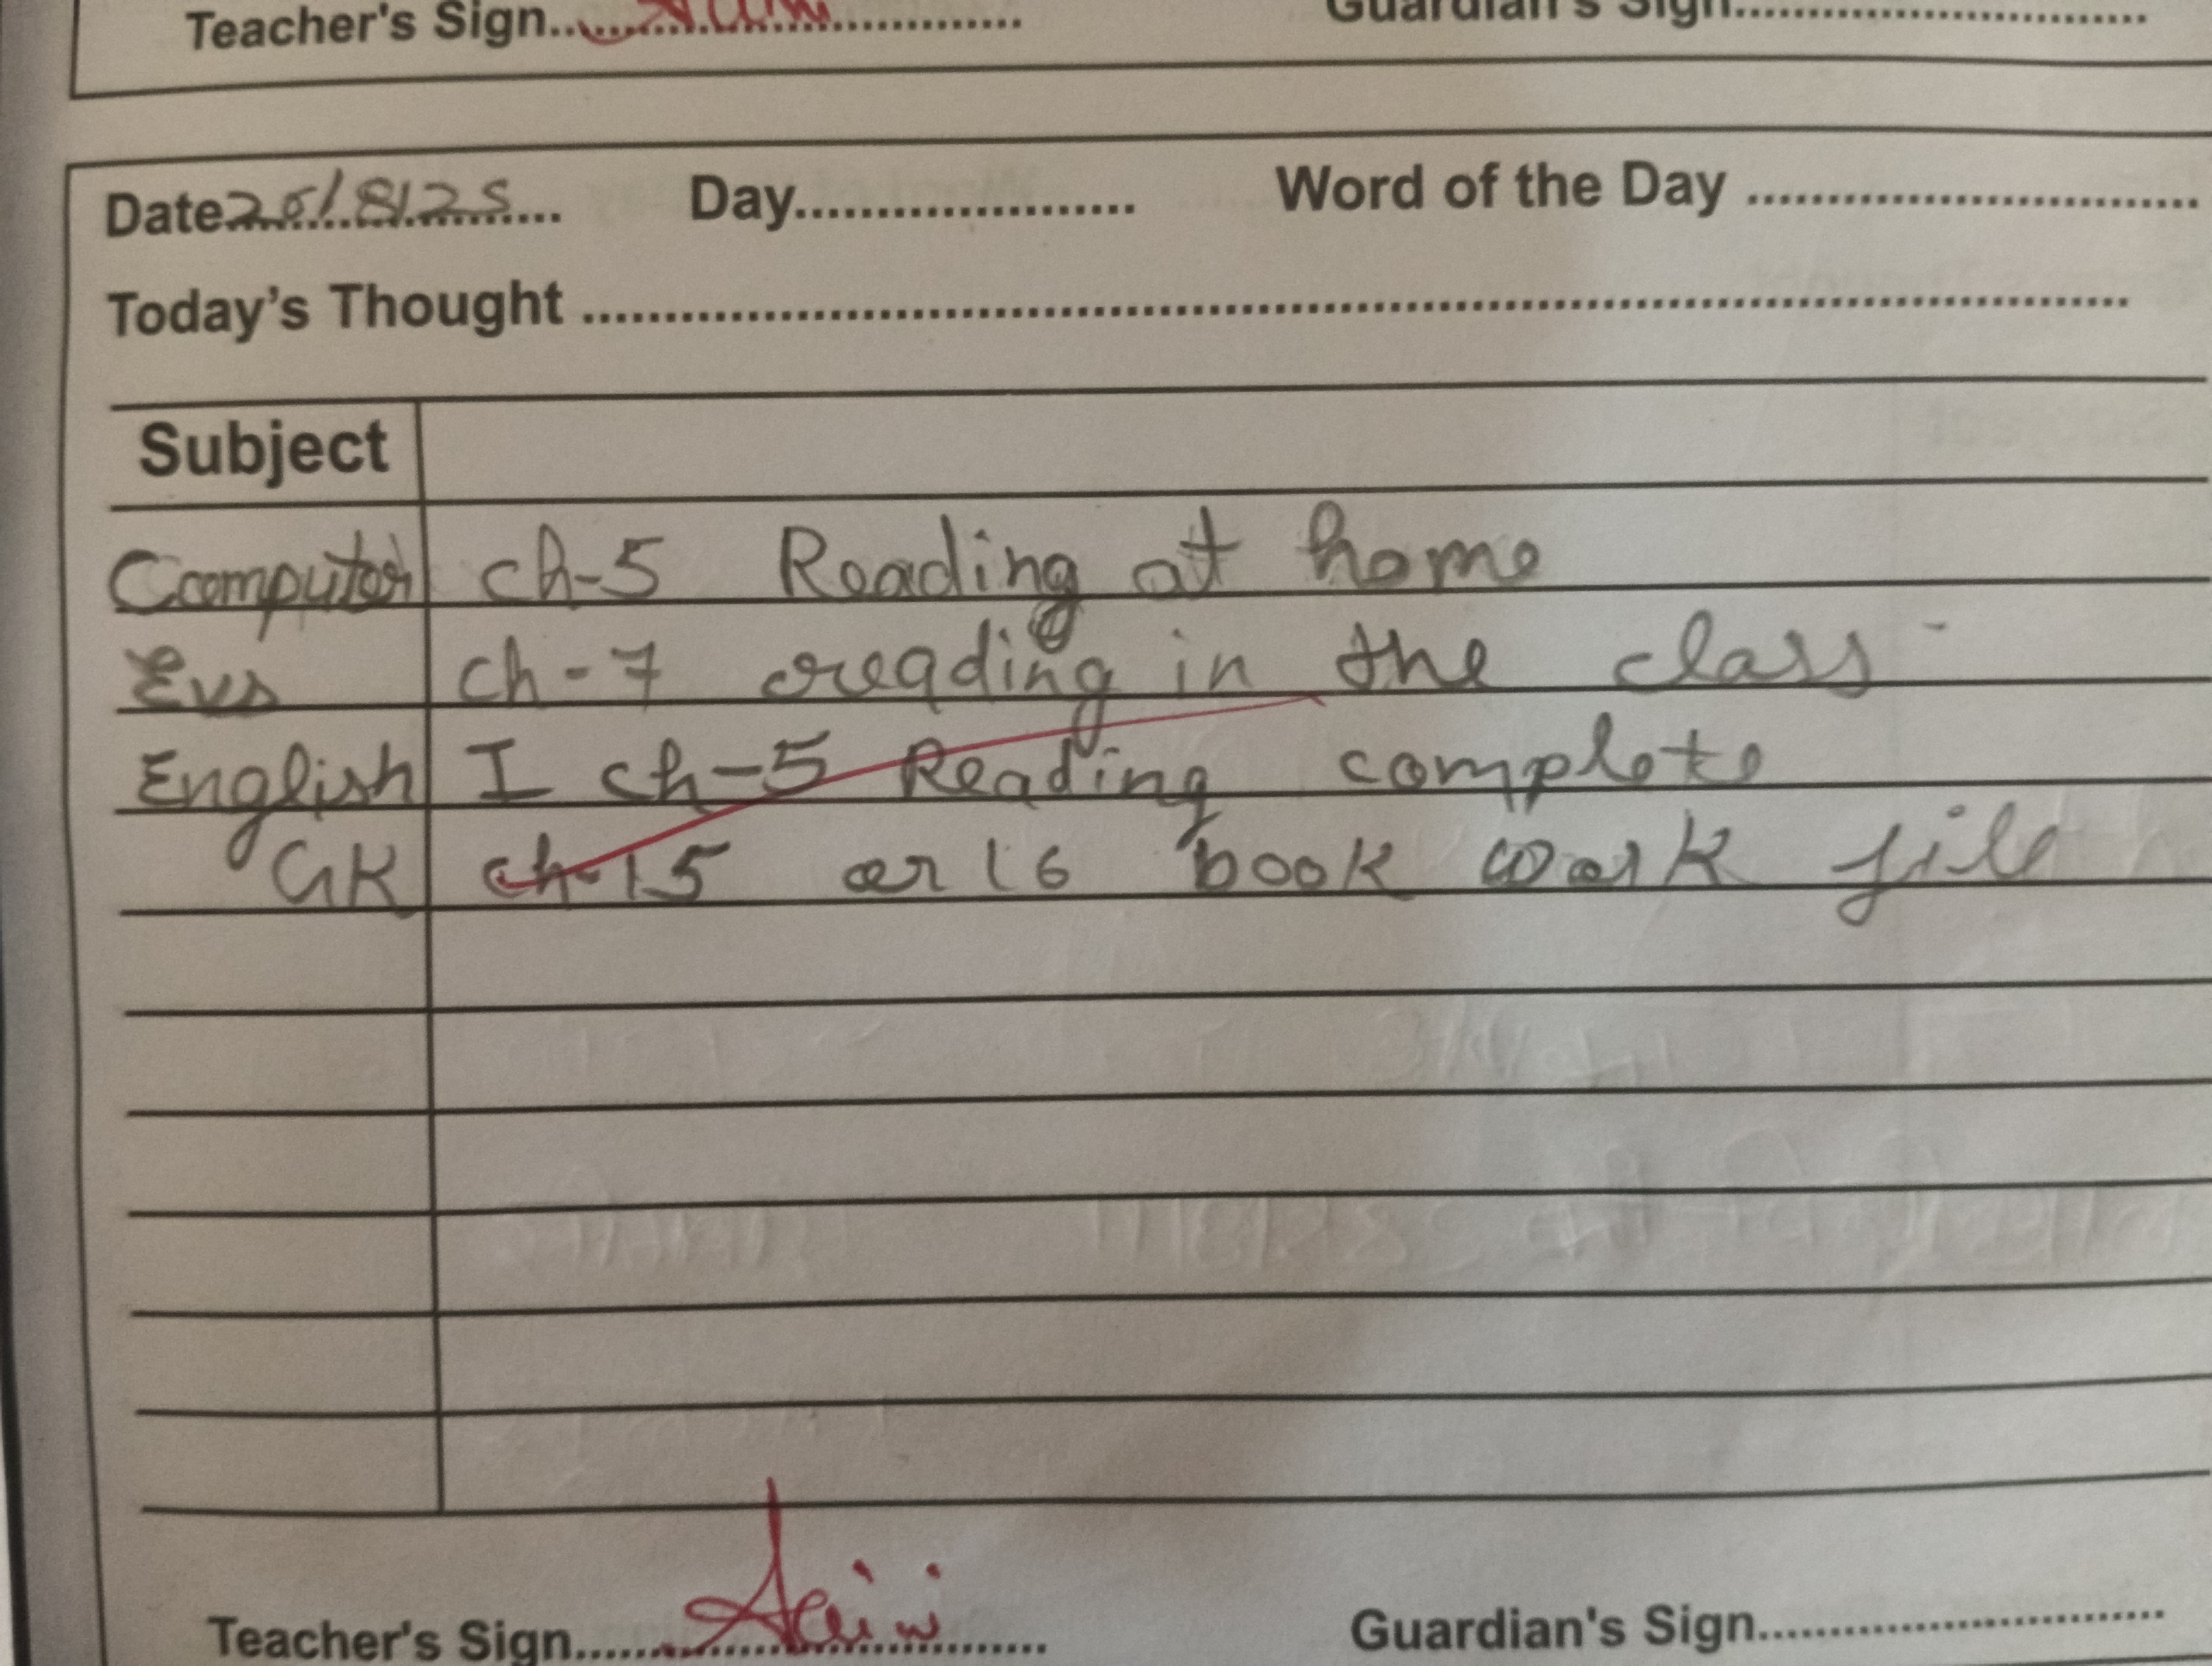 Teacher's Sign..............................
Guardian's Sign..............................
Date 20/8/25 Day...................... Word of the Day ............................
Today's Thought ..........................................................................
Subject
Computer ch-5 Reading at home
Evs ch-7 reading in the class
English I ch-5 Reading complete
GK ch-15 or 16 book work fill
Teacher's Sign..............................
Guardian's Sign..............................